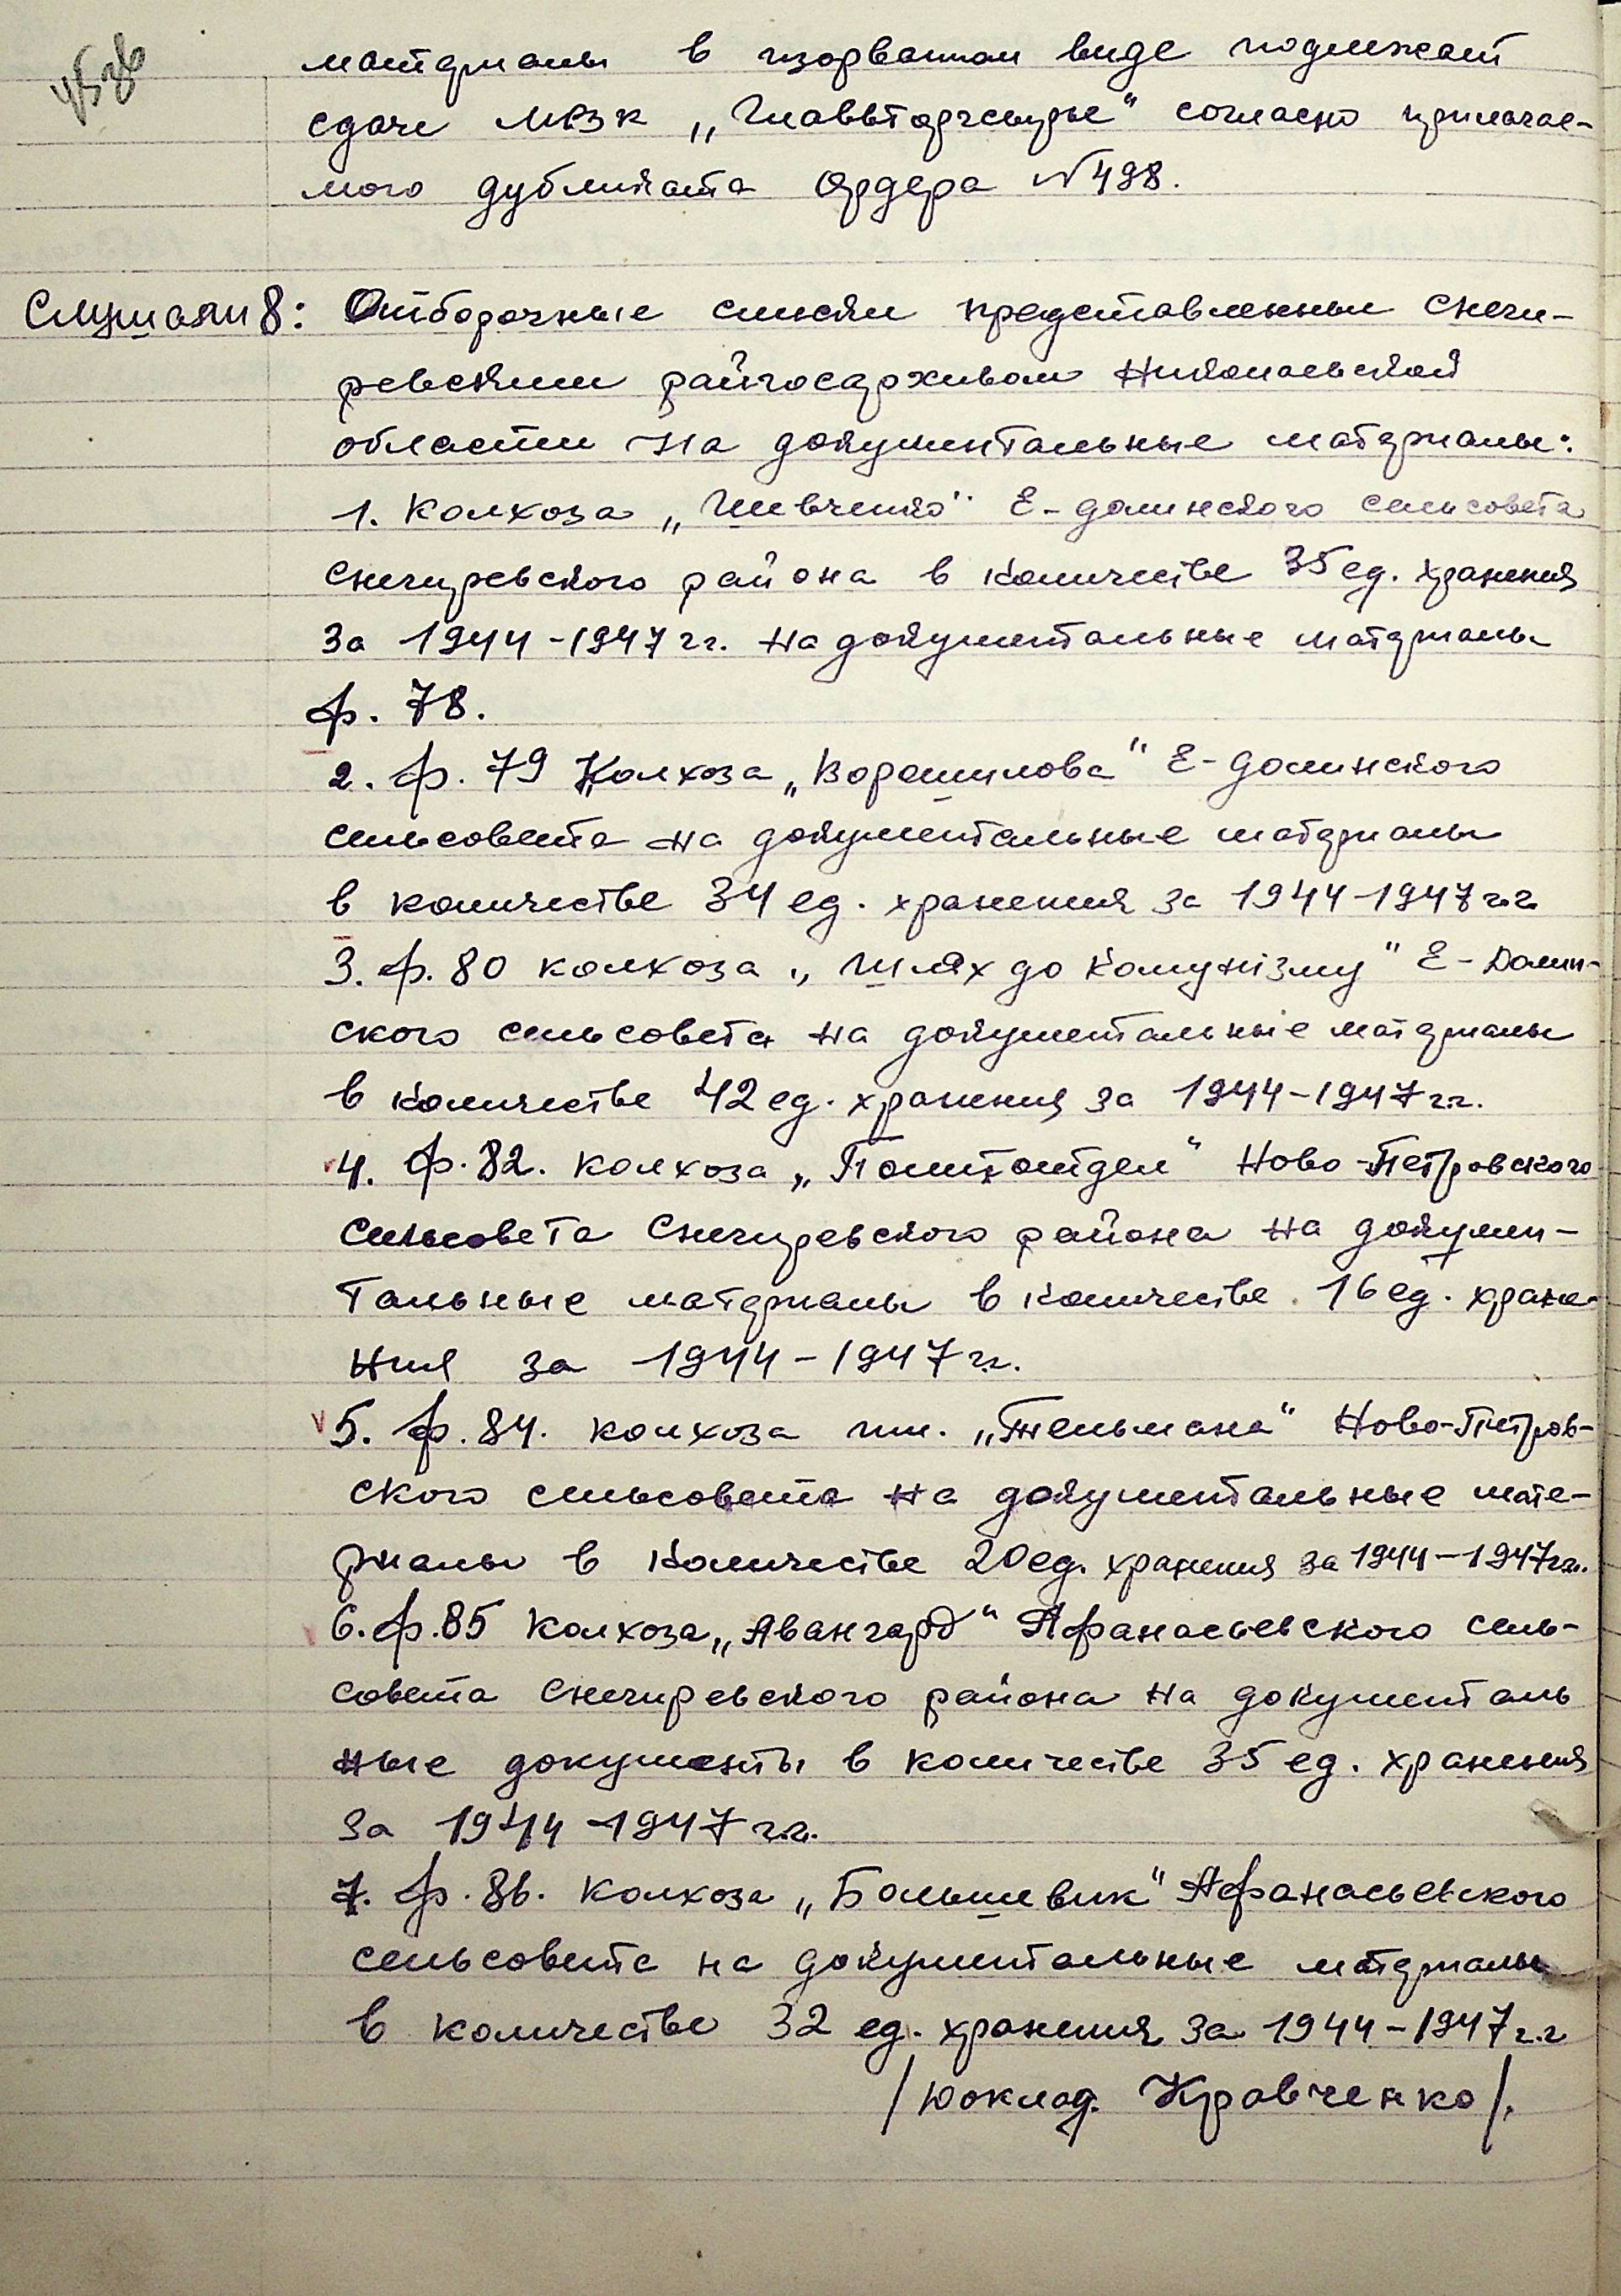 материалы в изорванном виде подлежат
сдаче МРЗК „Главвторчсырье“ согласно прилагае-
мого дубликата ордера №498.
Слушали 8: Отборочные списки представленные Снеги-
ревским райгосархивом Николаевской
области на документальные материалы:
1. Колхоза „Шевченко“ Е-долинского сельсовета
Снегиревского района в количестве 35 ед. хранения
за 1944-1947 гг. на документальные материалы
ф. 78.
2. ф. 79 Колхоза „Ворошилова“ Е-долинского
сельсовета на документальные материалы
в количестве 34 ед. хранения за 1944-1947 г.г.
3. ф. 80 колхоза „Шлях до Комунізму“ Е-Долин-
ского сельсовета на документальные материалы
в количестве 42 ед. хранения за 1944-1947 г.г.
4. ф. 82. колхоза „Политотдел“ Ново-Петровского
сельсовета Снегиревского района на докумен-
тальные материалы в количестве 16 ед. хране-
ния за 1944-1947 г.г.
5. ф. 84. колхоза им. „Тельмана“ Ново-Петров-
ского сельсовета на документальные мате-
риалы в количестве 20 ед. хранения за 1944-1947 г.г.
6. ф. 85 Колхоза „Авангард“ Афанасьевского сель-
совета Снегиревского района на документаль
ные документы в количестве 35 ед. хранения
за 1944-1947 г.г.
7. ф. 86. Колхоза „Большевик“ Афанасьевского
сельсовета на документальные материалы
в количестве 32 ед. хранения за 1944-1947 г.г
/Доклад. Кравченко/.